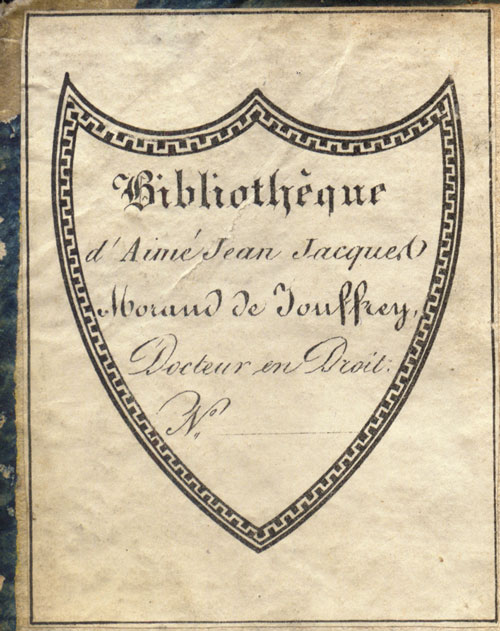 Bibliothèque
d'Aimé Jean Jacques
Morand de Jouffrey,
Docteur en Droit.
N°